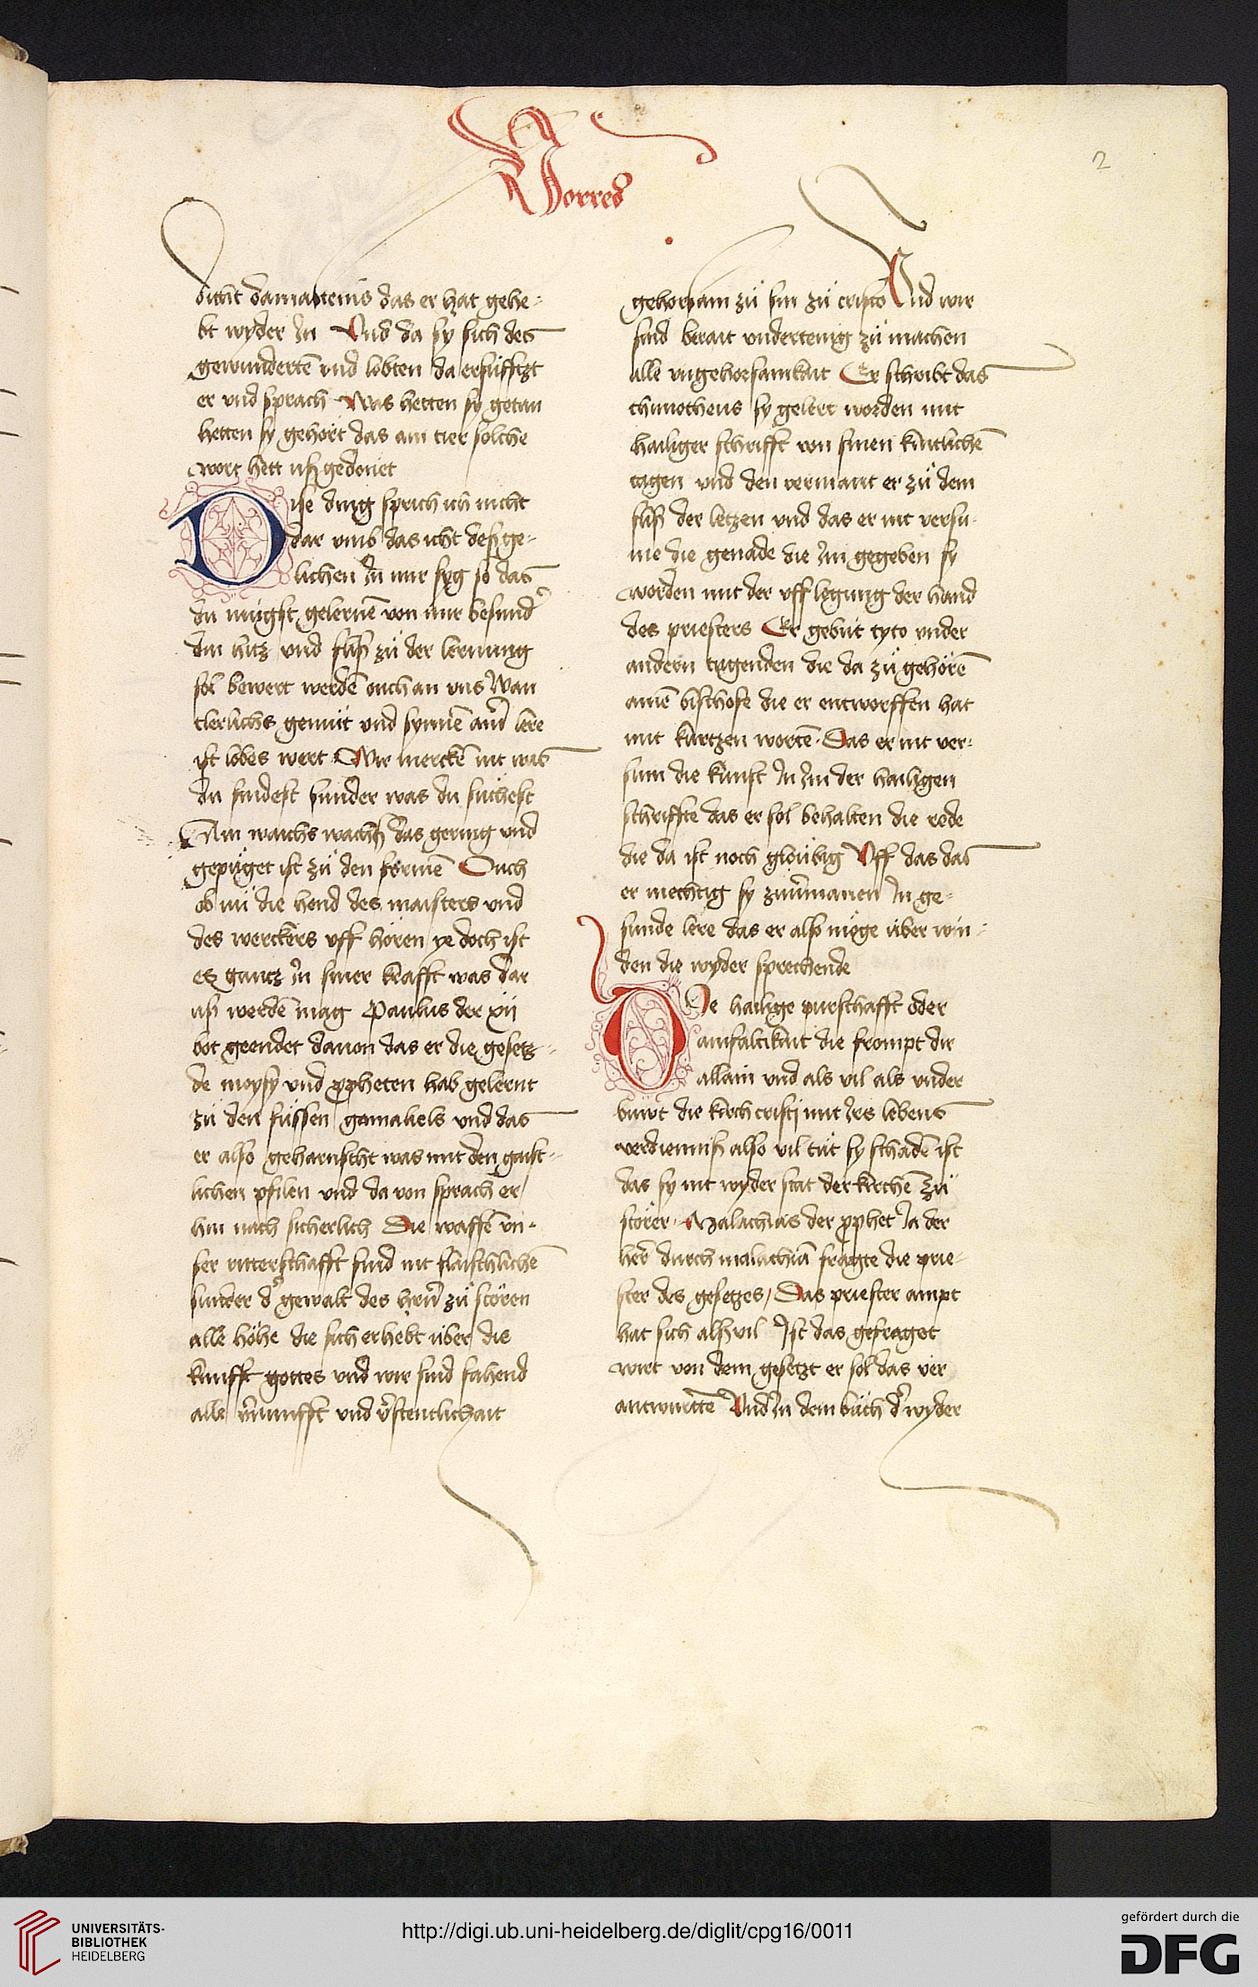 Vorred
2
dicht damastenus das er hat gehe-
bt wyder In Vnd da sy sich des
gewundertē vnd lobten da ersüfftzt
er vnd sprach Was hetten sy getan
hetten sy gehört das ain tier solche
wort hett usz gedönet
Dise ding sprich ich nicht
dar vmb das icht desz ge-
lichen In mir syg so das
du mügst gelernē von mir besund
din hitz vnd flisz zů der lernung
sol bewert werdē ouch an vns Wan
clerlichs gemüt vnd synnē an lere
ist lobes wert Wir merckē nit was
du findest sunder was du süchest
Ain waichs wachsz das gering vnd
geprüget ist zů den formē Ouch
ob nu die hend des maisters vnd
des werckers vff hören ye doch ist
es gantz In siner krafft was dar
usz werdē mag Paulus der xij
bot geendet dauon das er die gesetz-
de moysy vnd ppheten hab gelernt
zü den füssen gamaliels vnd das
er also geharnscht was mit den gaist-
lichen pfilen vnd da von sprach er
hin nach sicherlich Die waffē vn-
ser ritterschafft sind nit flaischlichē
sunder d gewalt des hern zů stören
alle höhe die sich erhebt über die
kunfft gottes vnd wir sind fahend
alle vnunfft vnd vstentlichait
gehorsam zů sin zů cristo Vnd wir
sind berait vndertenig zů machen
alle vngehorsamkait Er schribt das
thimotheus sy gelert worden mit
hailiger schrifft von sinen kintlichē
tagen vnd den vermant er zů dem
flisz der letzen vnd das er nit versu-
me die genade die Im gegeben sy
worden mit der vff legung der hand
des priesters Er gebüt tyto vnder
andern tugenden die da zů gehörē
ainē bischofe die er entworffen hat
mit kurtzen wortē Das er nit ver-
sum die kunst In Im der hailigen
schriffte das er sol behalten die rede
die da ist noch gloübig Vff das das
er mechtig sy zuuermanen In ge-
sunde lere das er also müge über win-
den die wyder sprechende
Die hailige purschafft oder
ainfaltikait die frompt dir
allain vnd als vil als vnder
buwt die kirch cristi mit Irs lebens
verdiennisz also vil tüt sy schadē ist
das sy nit wyder stat der kirchē zů
störer Malachias der pphet Ja der
her durch malachiā fragte die prie-
ster des gesetzes Das priester ampt
hat sich alsz vil Ist das gefraget
wirt von dem gesetzt er sol das ver
antwurttē Vnd In dem büch d wyder
UNIVERSITÄTS-
BIBLIOTHEK
HEIDELBERG
http://digi.ub.uni-heidelberg.de/diglit/cpg16/0011
gefördert durch die
DFG